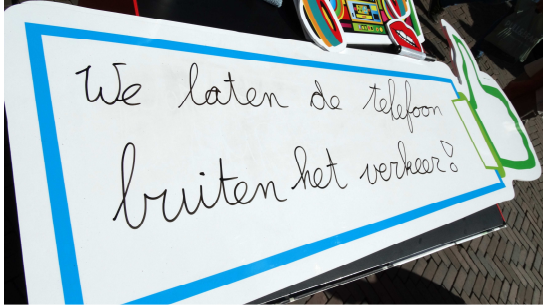 We laten de telefoon
buiten het verkeer!